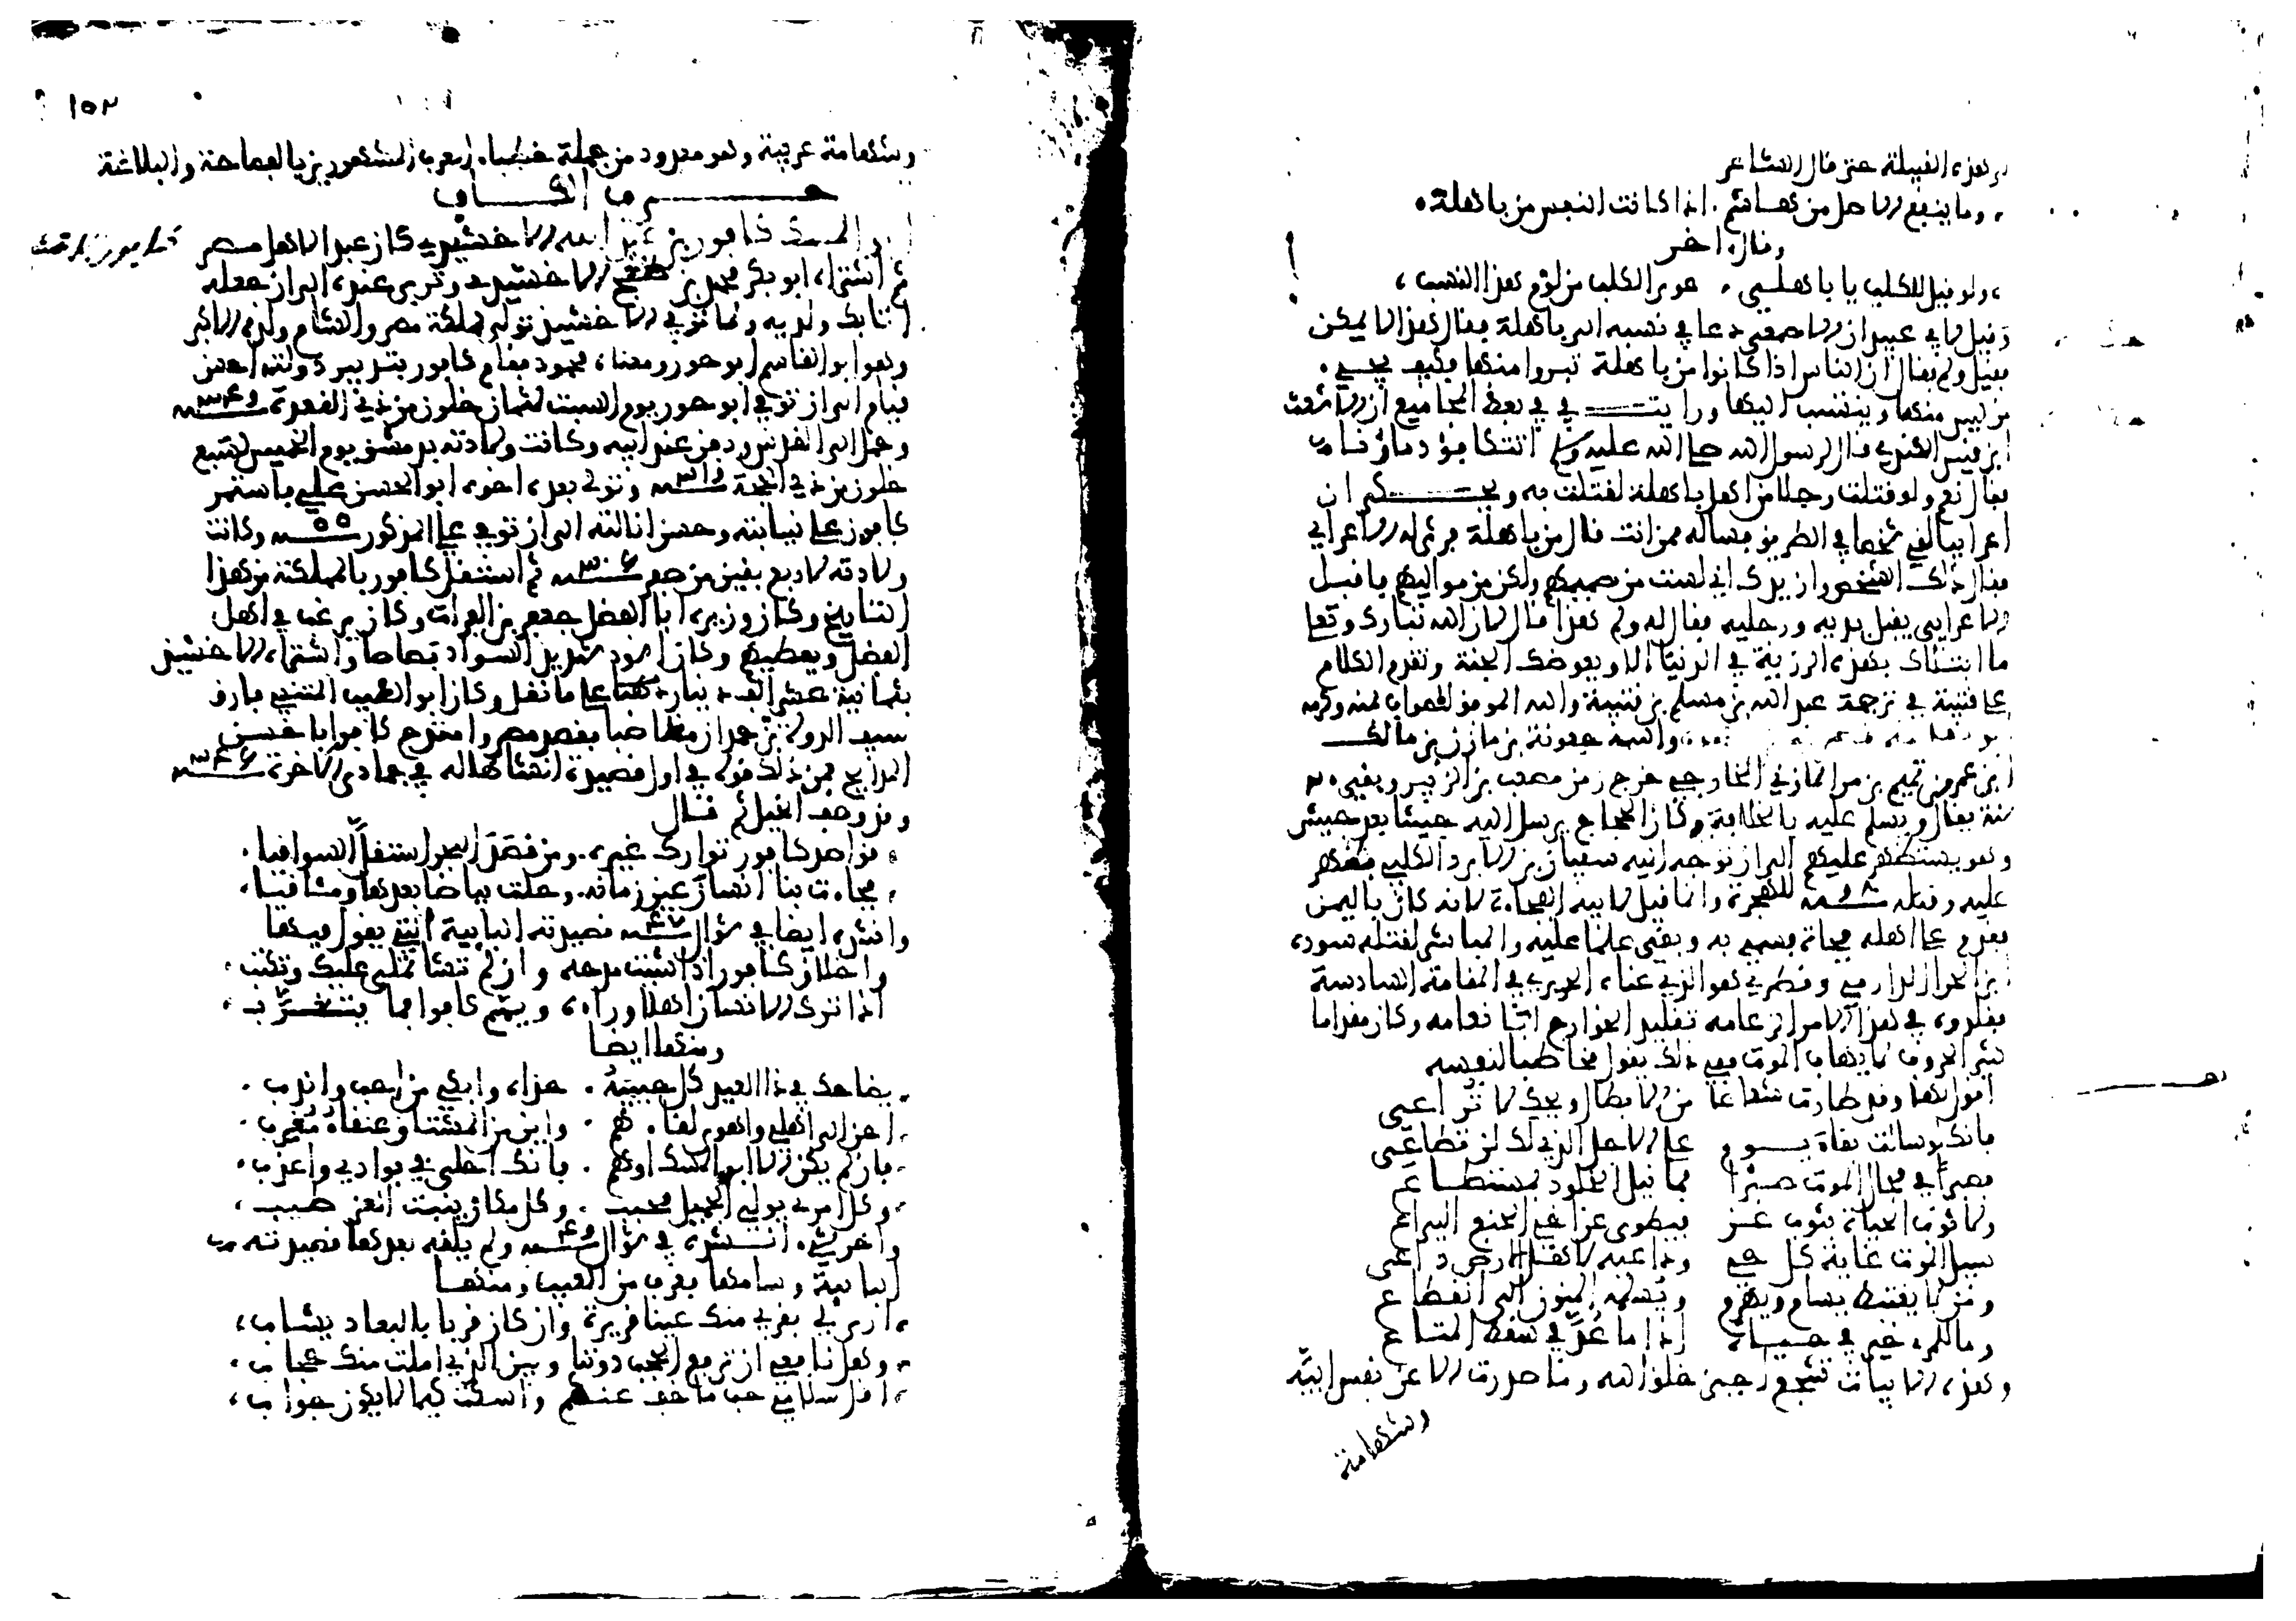 وهذه القبيلة حتى قال الشاعر
وما ينفع الاصل من هاشم اذا كانت النفس من باهلة
وقال اخر
ولو قيل للكلب يا باهلي عوى الكلب من لؤم هذا النسب
وقيل لابي عبيد ان الاصمعي دعا في نسبه الى باهلة فقال هذا لا يمكن
فقيل ولم فقال ان الناس اذا كانوا من باهلة تبروا منها فكيف يجيء
من ليس منها وينتسب اليها ورايت في بعض المجاميع ان الاشعث
ابن قيس الكندي قال لرسول الله صلى الله عليه وسلم اتتكافؤ دماؤنا
فقال نعم ولو قتلت رجلا من اهل باهلة لقتلت به ويحكى ان
اعرابيا لقي شخصا في الطريق فساله ممن انت قال من باهلة فرثى له الاعرابي
فقال ذلك الشخص وازيدك اني لست من صميمهم ولكن من مواليهم فاقبل
الاعرابي يقبل يديه ورجليه فقال له ولم هذا قال لان الله تبارك وتعلى
ما ابتلاك بهذه الرزية في الدنيا الا ويعوضك الجنة وتقدم الكلام
على قتيبة في ترجمة عبد الله بن مسلم بن قتيبة والله الموفق للصواب بمنه وكرمه
واسمه جعونة بن مازن بن مالك
ابن عمرو بن تميم بن مر المازني الخارجي خرج زمن مصعب بن الزبير وبقي ٢٠
سنة يقاتل ويسلم عليه بالخلافة وكان الحجاج يرسل اليه جيشا بعد جيش
وهو يستظهر عليهم الى ان توجه اليه سفيان بن الابرد الكلبي فظهر
عليه وقتله سنة للهجرة وانما قيل لابيه الفجاءة لانه كان باليمن
فقدم على اهله فجاة فسمي به وبقي علما عليه والمباشر لقتله سودة
ابن الحر الدارمي وقطري هو الذي عناه الحريري في المقامة السادسة
فقلدوه في هذا الامر الزعامه تقليد الخوارج ابا نعامه وكان مقداما
كثير الحروف لا يهاب الموت وفي ذلك يقول مخاطبا لنفسه
اقول لها وقد طارت شعاعا من الابطال ويحك لا تراعى
فانك لو سالت بقاء يوم على الاجل الذي لك لن تطاعى
فصبرا في مجال الموت صبرا فما نيل الخلود بمستطاع
ولا ثوب الحياة بثوب عز فيطوى عن اخي الخنع اليراع
سبيل الموت غاية كل حي وداعيه لاهل الارض داعى
ومن لا يغتبط يسام ويهرم وتسلمه المنون الى انقطاع
وما للمرء خير في حياة اذا ما عد في سقط المتاع
وهذه الابيات تشجع اجبن خلق الله وما صدرت الا عن نفس ابية
وشهامة
١٥٢
وشهامة عربية وهو معدود من جملة خطباء العرب المشهورين بالفصاحة والبلاغة
حرف الكاف
كافور بن عبد الله الاخشيدي كان عبدا لاهل مصر
ثم اشتراه ابو بكر محمد بن طغج الاخشيد وترقى عنده الى ان جعله
اتابك ولديه ولما توفي الاخشيد تولى مملكة مصر والشام ولده الاكبر
وهو ابو القاسم ابو حور ومعناه محمود فقام كافور بتدبير دولته احسن
قيام الى ان توفي ابو حور يوم السبت لثمان خلون من ذي القعدة سنة ٣٤٩
وحمل الى القدس ودفن عند ابيه وكانت ولادته بدمشق يوم الخميس لتسع
خلون من ذي الحجة سنة ٣١٩ وتولى بعده اخوه ابو الحسن علي فاستمر
كافور على نيابته وحسن ايالته الى ان توفي علي المذكور سنة ٥٥ وكانت
ولادته لاربع بقين من صفر سنة ثم استقل كافور بالمملكة من هذا
التاريخ وكان وزيره ابا الفضل جعفر بن الفرات وكان يرغب في اهل
الفضل ويعظمهم وكان اسود شديد السواد بصاصا واشتراه الاخشيد
بثمانية عشر الف دينار هكذا على ما نقل وكان ابو الطيب المتنبي فارق
سيف الدولة بن حمدان مغاضبا فقصد مصر وامتدح كافورا باحسن
المدايح فمن ذلك قوله في اول قصيدة انشاها له في جمادى الاخرة سنة ٣٤٦
وقد وصف الخيل ثم قال
قواصد كافور توارك غيره ومن قصد البحر استقل السواقيا
فجاءت بنا انسان عين زمانه وخلت بياضا بعدها ومئاقيا
وانشده ايضا في شوال سنة ٤٧ قصيدته البائية التي يقول فيها
واخلاق كافور اذا شئت مدحه وان لم تشا تملي عليك وتكتب
اذا ترك الانسان اهلا وراءه ويمم كافورا فما يتغرب
ومنها ايضا
يضاحك في ذا العيد كل حبيبه حذاء وابكي من احب واندب
احن الى اهلي واهوى لقاءهم واين من المشتاق عنقاء مغرب
فان لم يكن الا ابو المسك اوهم فانك احلى في فوادي واعذب
وكل امرئ يولي الجميل محبب وكل مكان ينبت العز طيب
واخر شيء انشده في شوال سنة ٤٩ ولم يلقه بعدها قصيدته
البائية وسامها بغرب من العيب ومنها
ارى لي بقربي منك عينا قريرة وان كان قربا بالبعاد يشاب
وهل نافعي ان ترفع الحجب دوننا وبين الذي املت منك حجاب
اقل سلامي حب ما خف عنكم واسكت كيما لا يكون جواب